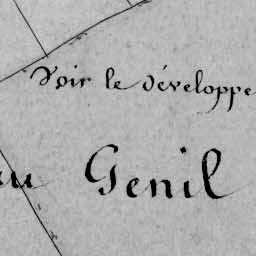 Voir le développe
au Genil